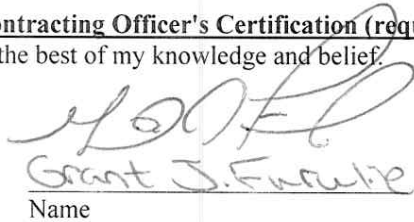 ontracting Officer's Certification (requ
the best of my knowledge and belief.
Grant J.
Name